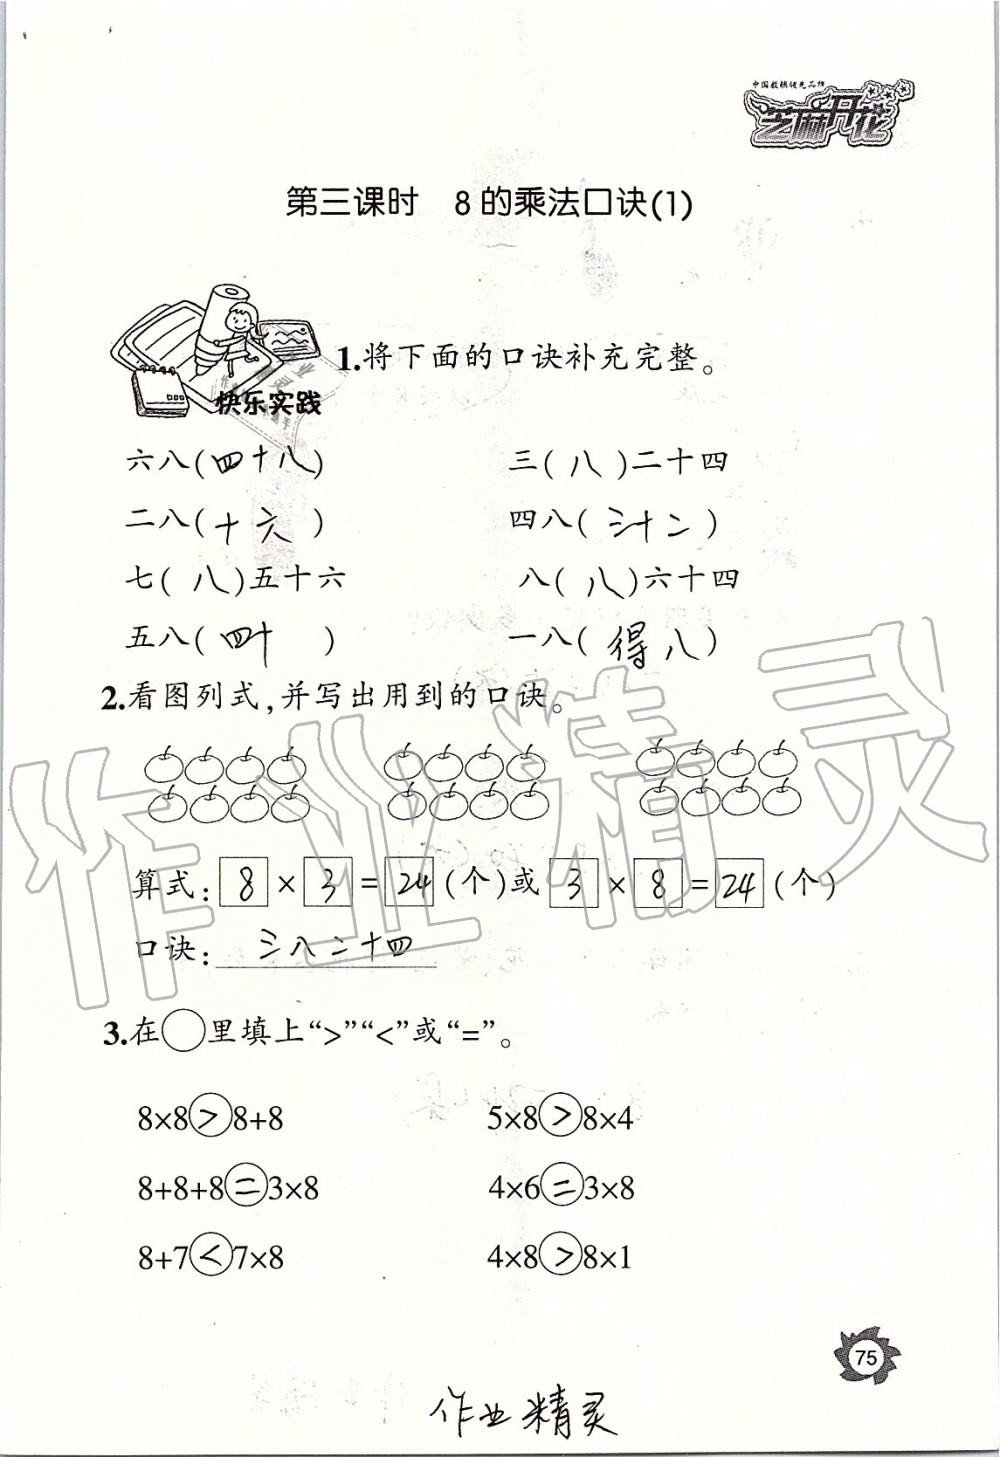 中国教辅领先品牌
芝麻开花
第三课时 8的乘法口诀(1)
快乐实践
1.将下面的口诀补充完整。
六八(四十八) 三(八)二十四
二八(十六) 四八(三十二)
七(八)五十六 八(八)六十四
五八(四十) 一八(得八)
2.看图列式,并写出用到的口诀。
算式:8×3=24(个)或3×8=24(个)
口诀:三八二十四
3.在○里填上“>”“<”或“=”。
8×8>8+8 5×8>8×4
8+8+8=3×8 4×6=3×8
8+7<7×8 4×8>8×1
75
作业精灵
作业精灵